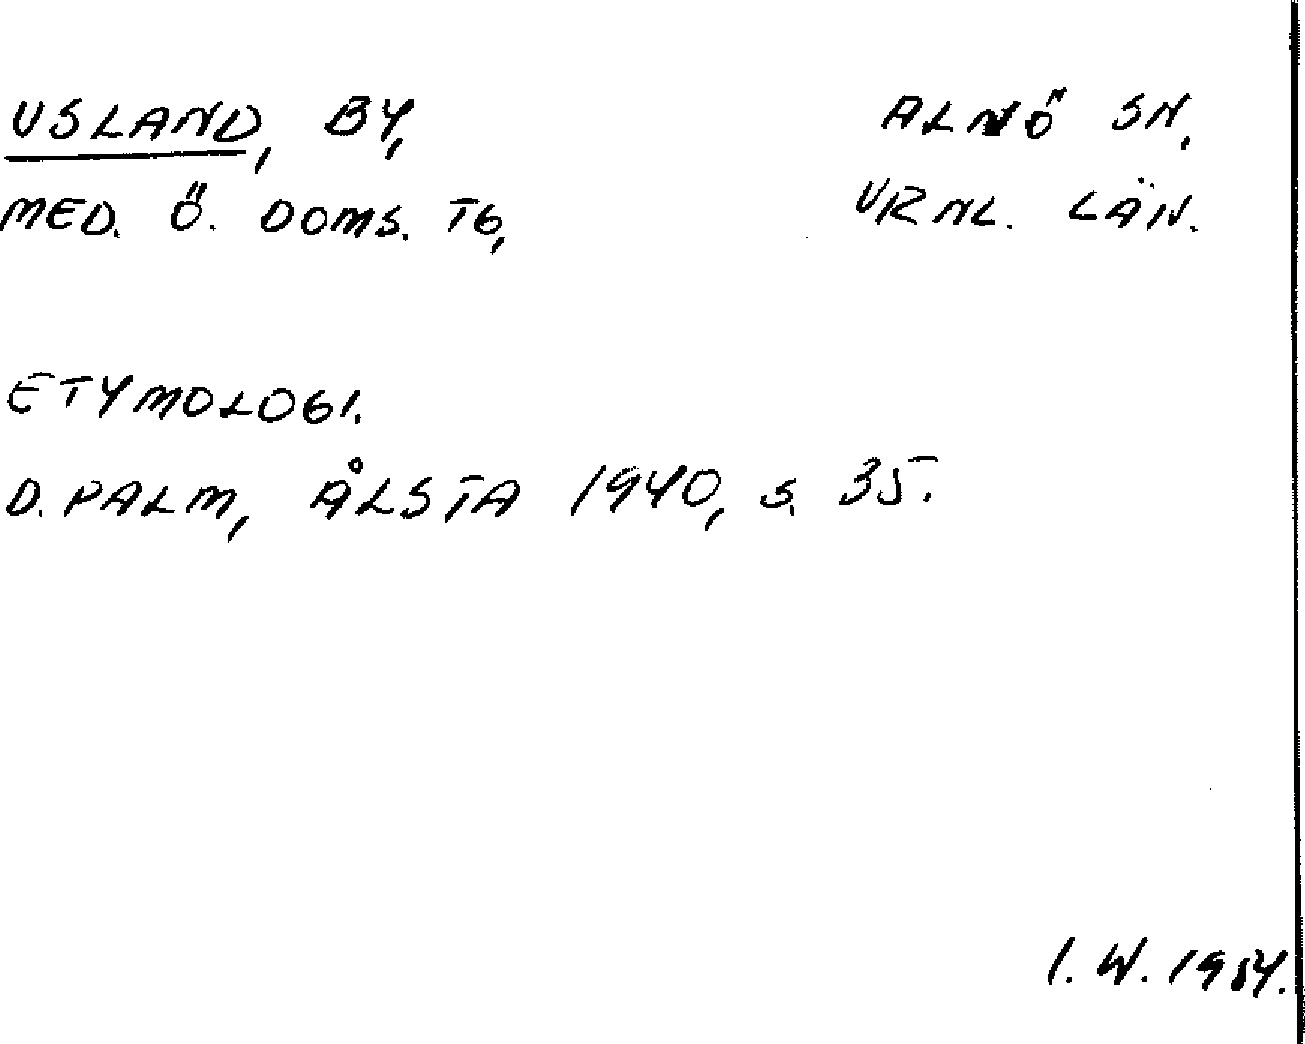 USLAND, BY, ALNÖ SN,
MED. Ö. DOMS. TG, VRNL. LÄN.
ETYMOLOGI.
D. PALM, ÅLSTA 1940, S. 35.
I. W. 1954.